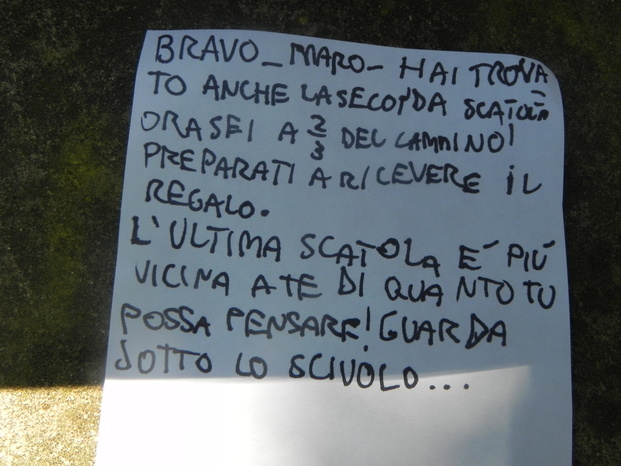 BRAVO_MARO- HAI TROVA
TO ANCHE LA SECONDA SCATOLA
ORA SEI A 2/3 DEL CAMMINO!
PREPARATI A RICEVERE IL
REGALO.
L'ULTIMA SCATOLA E' PIU'
VICINA A TE DI QUANTO TU
POSSA PENSARE! GUARDA
SOTTO LO SCIVOLO...